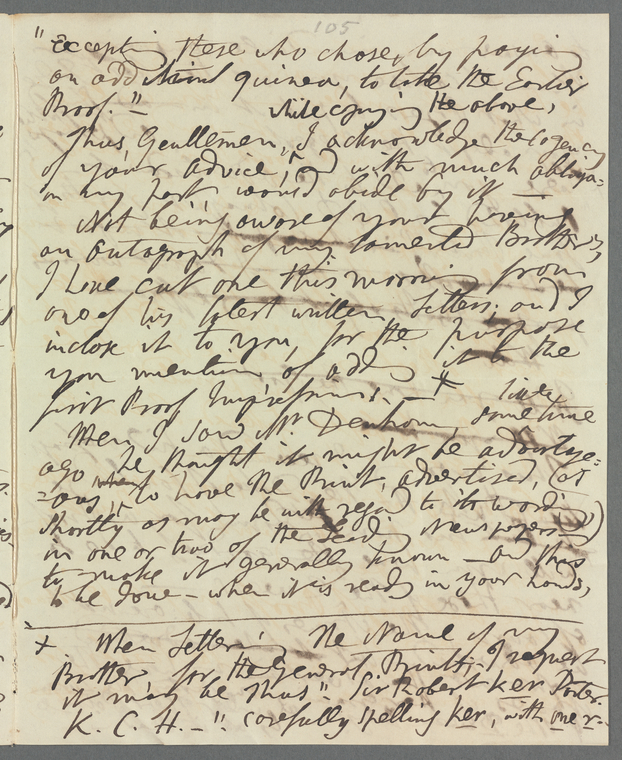 105
"Excepting those who chose, by paying
an additional guinea, to take the Earlier
Proof."
While copying the above,
Thus Gentlemen, I acknowledge the cogency
of your advice, and with much obliga=
on my part would abide by it —
Not being aware of your having
an autograph of my lamented Brother's,
I have cut one this morning from
one of his latest written Letters; and I
inclose it to you, for the purpose
you mention of adding it to the
first Proof Impressions. — +
When I saw Mr. Denham, some little time
ago he thought it might be advantage=
=ous, when to have the Print, advertised, (as
shortly as may be with regard to its wording)
in one or two of the Leading Newspapers —
to make it generally known — and this
to be done — when it is ready in your hands,
+ When Lettering the Name of my
Brother, for the General Prints, I request
it may be thus " Sir Robert Ker Porter.
K. C. H. — " carefully spelling Ker, with one r —